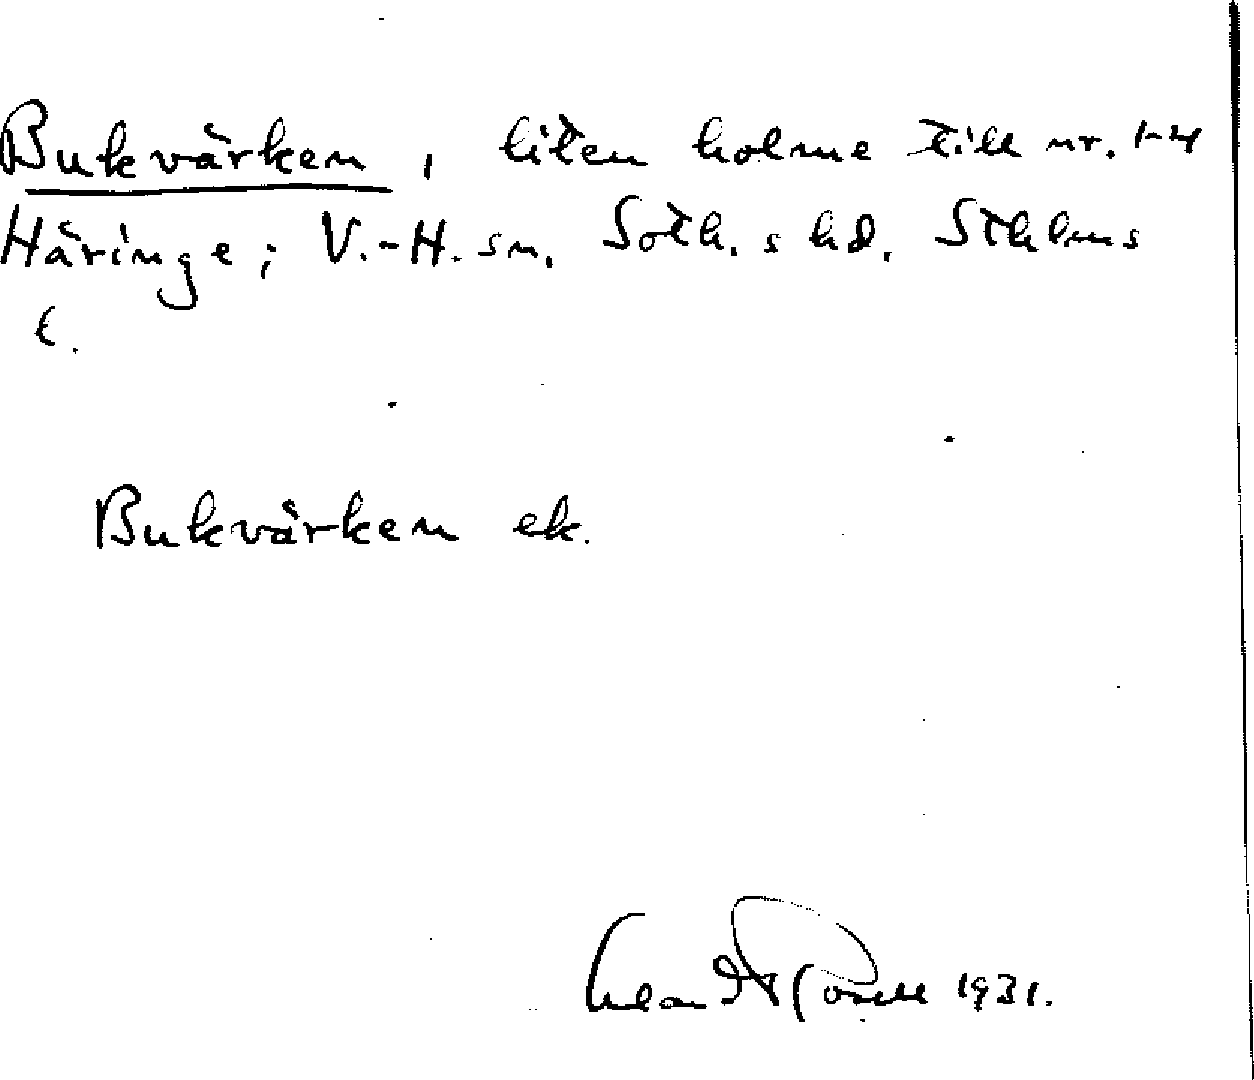 Bukvärken, liten holme till nr. 1-4
Häringe; V.-H. sn. Soth.s hd. Sthlms
l.
Bukvärken ek.
1931.